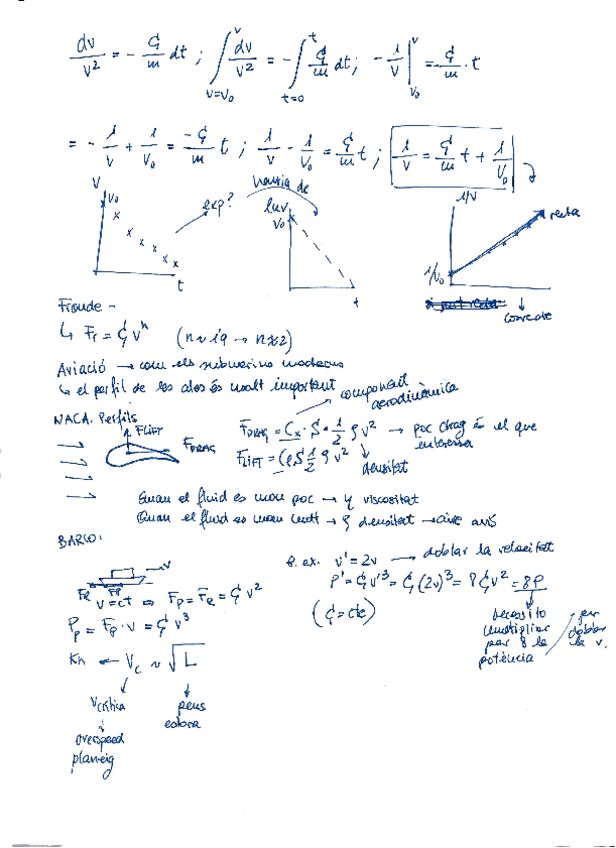 dv/v² = - ς/m dt ; ∫_{v=v₀}^{v} dv/v² = - ∫_{t=0}^{t} ς/m dt ; - 1/v |_{v₀}^{v} = - ς/m · t
= - 1/v + 1/v₀ = -ς/m t ; 1/v - 1/v₀ = ς/m t ; 1/v = ς/m t + 1/v₀
V v₀ t exp?
hauria de
luv v₀ t
1/v 1/v₀ recta
Froude -
↳ Fr = ς vⁿ (n ~ 1'9 → n≈2)
Aviació → com els submarins moderns
↳ el perfil de les ales és molt important
component aerodinàmica
NACA. Perfils
FLIFT FDRAG
FDRAG = Cx · S · 1/2 ρ v² → poc drag és el que interessa
FLIFT = Cl S 1/2 ρ v²
densitat
Quan el fluid es mou poc → η viscositat
Quan el fluid es mou molt → ρ densitat → aire avió
BARCO:
v FR FP
v = ct ⇒ FP = FR = ς v²
Pp = Fp · v = ς v³
Kn ← Vc ~ √L
Vcrítica
overspeed
planeig
peus
eslora
P. ex. v' = 2v → doblar la velocitat
P' = ς v'³ = ς (2v)³ = 8 ς v³ = 8P
(ς = cte)
necessito
multiplicar
per 8 la
potència
per
doblar
la v.